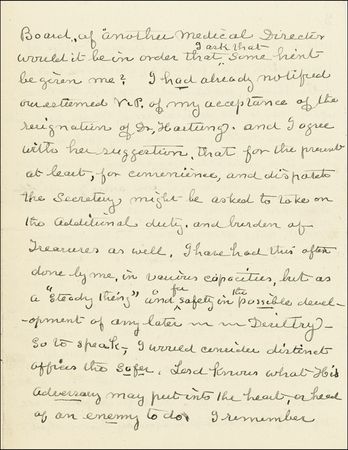 Board, of another Medical Director
would it be in order that I ask that some hint
be given me? I had already notified
our esteemed V.P. of my acceptance of the
resignation of Dr. Hartung. and I agree
with her suggestion, that for the present
at least, for convenience, and dispatch
the Secretary might be asked to take on
the additional duty. and burden of
Treasurer as well. I have had this often
done by me, in various capacities, but as
a "steady thing" and for safety in the possible devel-
opment of any later
So to speak, I would consider distinct
offices the safer. Lord knows what His
adversary may put into the heart, or head
of an enemy to do. I remember